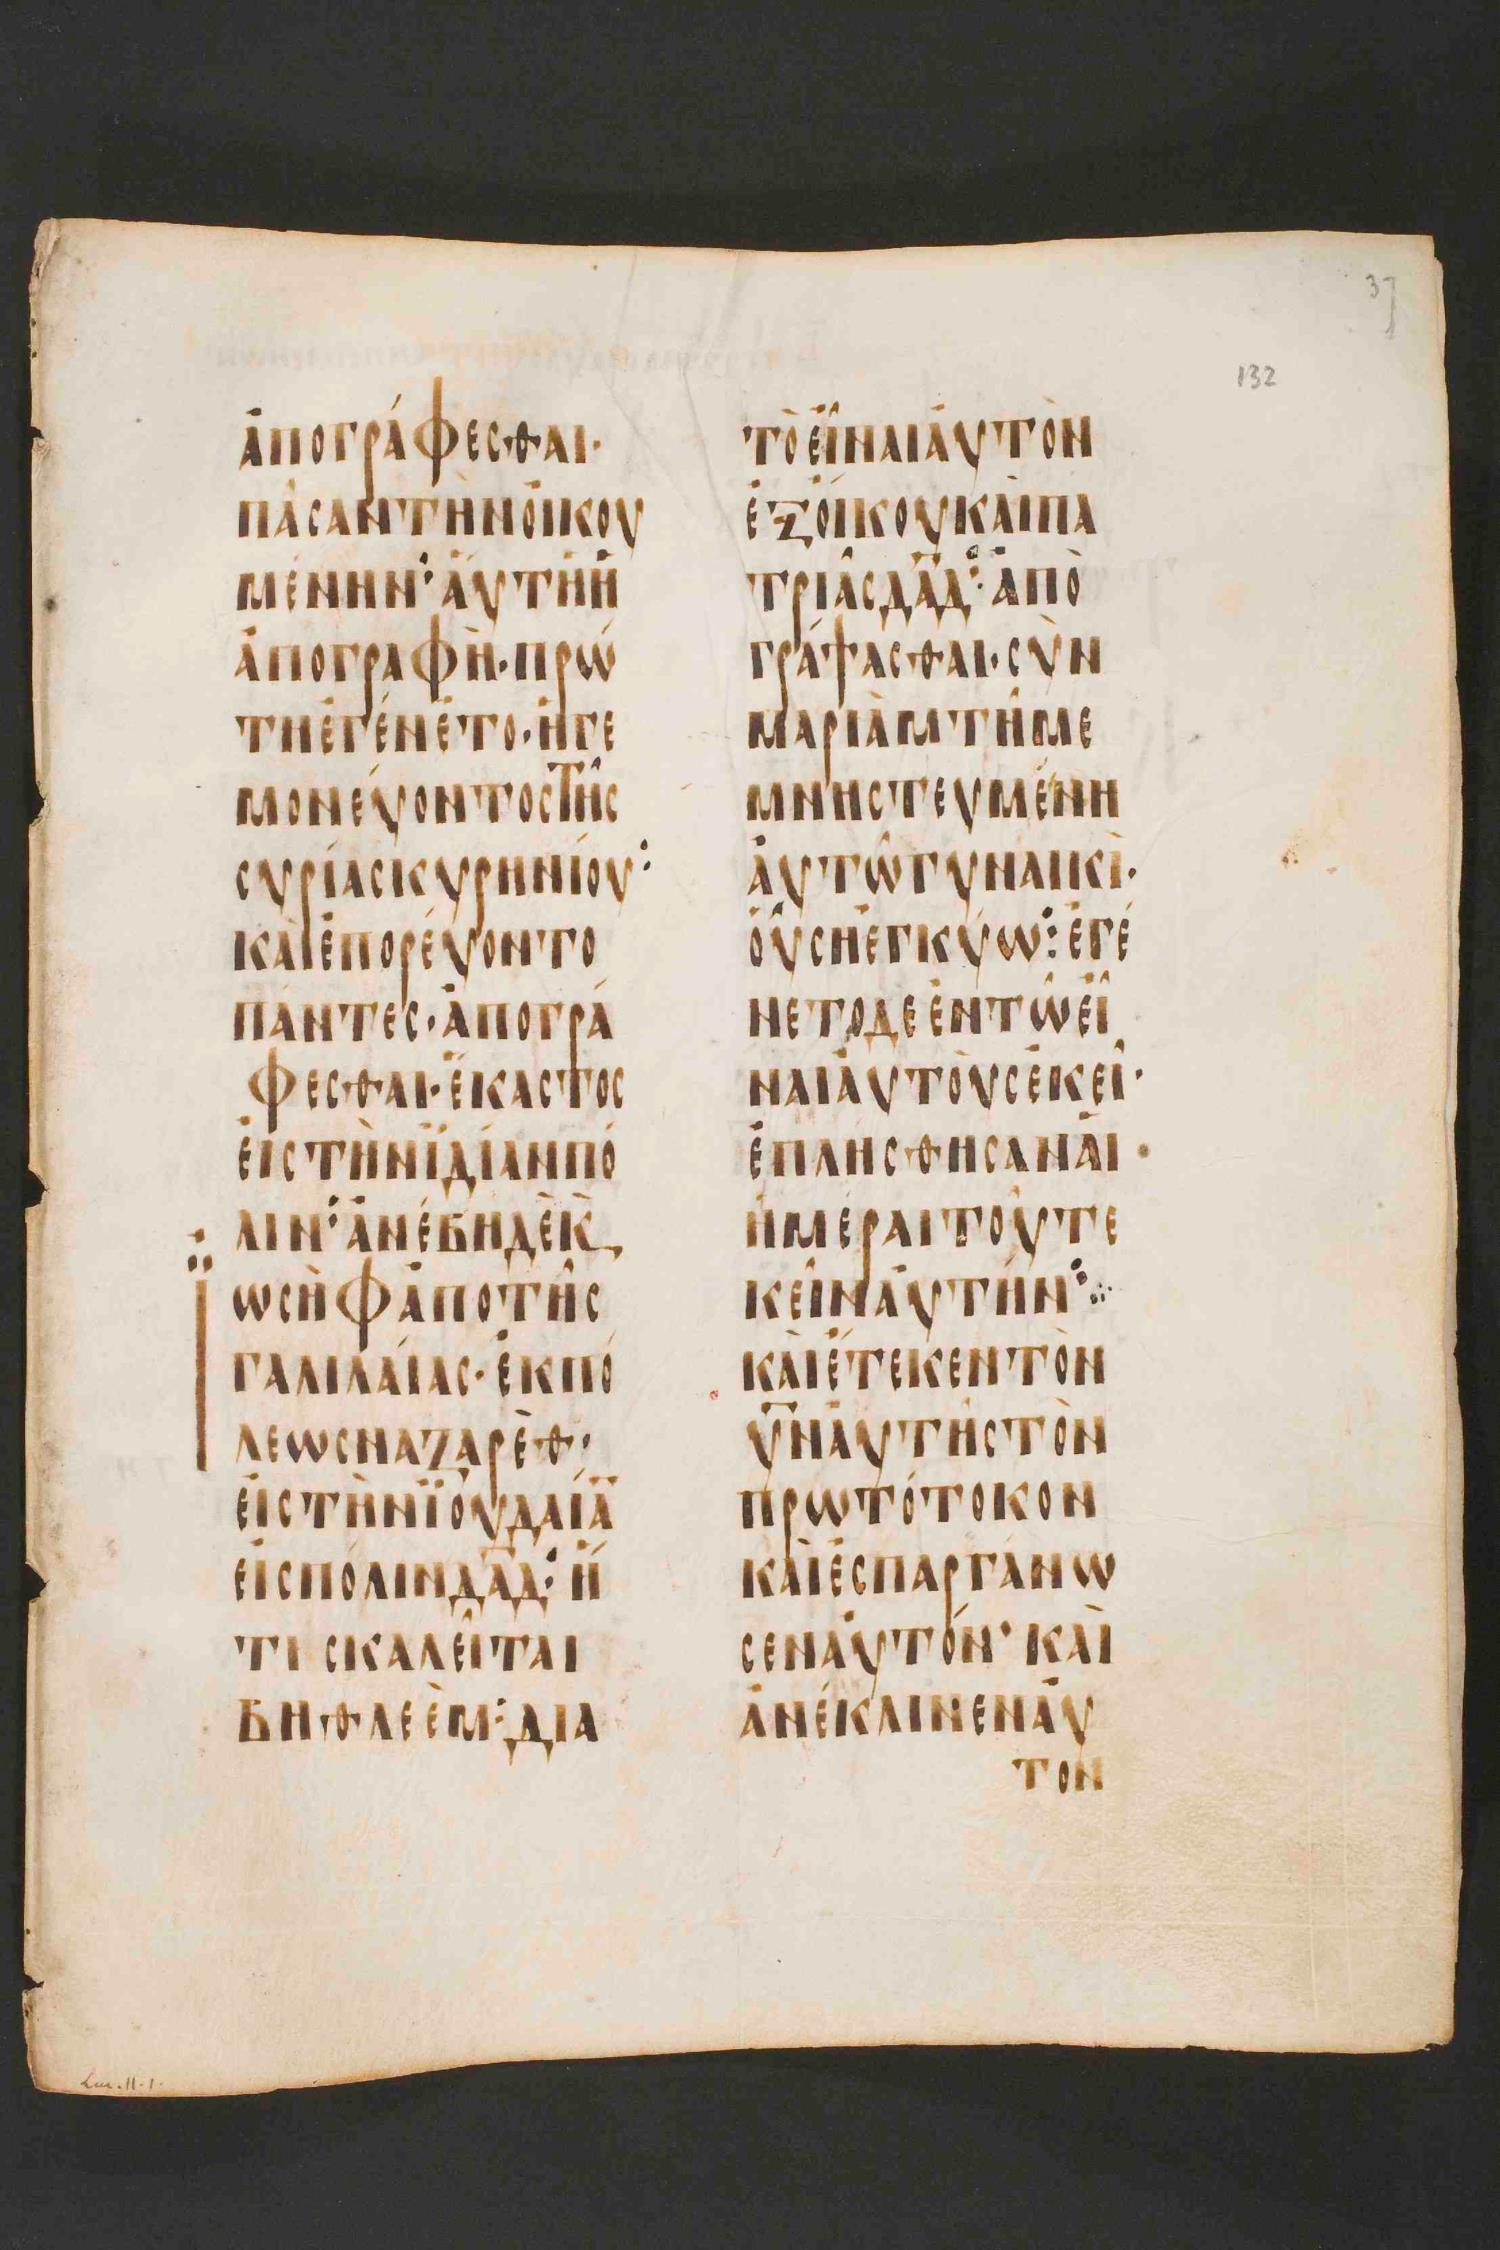 37
132
ἀπογράφεσθαι·
πᾶσαν τὴν ὀικου
μένην· ἅυτη ἡ
ἀπογραφὴ· πρώ
τη ἐγένετο· ἡγε
μονέυοντος τῆς
συρίας κυρηνίου·
κὰι ἐπορέυοντο
πάντες· ἀπογρά
φεσθαι· ἕκαστος
ἐις τὴν ϊδίαν πό
λιν· ἀνέβη δὲ κ̀
ϊωσὴφ ἀπο τῆς
γαλιλάιας· ἐκ πό
λεως ναζαρὲθ·
ἐις τὴν ϊουδαίᾱ
ἐις πόλιν δᾱδ· ἥ
τις καλεῖται
βηθλεὲμ· δια
τὸ ἐῖναι ἀυτὸν
ἐξ ὀίκου κὰι πα
τριᾶς δᾱδ· ἀπὸ
γράψασθαι· σὺν
μαριὰμ τῆ με
μνηστευμένη
ἀυτῶ γυναικὶ·
ὀύση ἐγκύω· ἐγέ
νετο δε ἐν τῶ ἐῖ
ναι ἀυτὸυς ἐκεῖ·
ἐπλήσθησαν ἁι
ἡμέραι τοῦ τε
κεῖν ἀυτήν·
κὰι ἔτεκεν τὸν
ῡν ἀυτῆς τὸν
πρωτότοκον
κὰι ἐσπαργάνω
σεν ἀυτόν· κὰι
ἀνέκλινεν ἀυ
τον
Luc. II. 1.